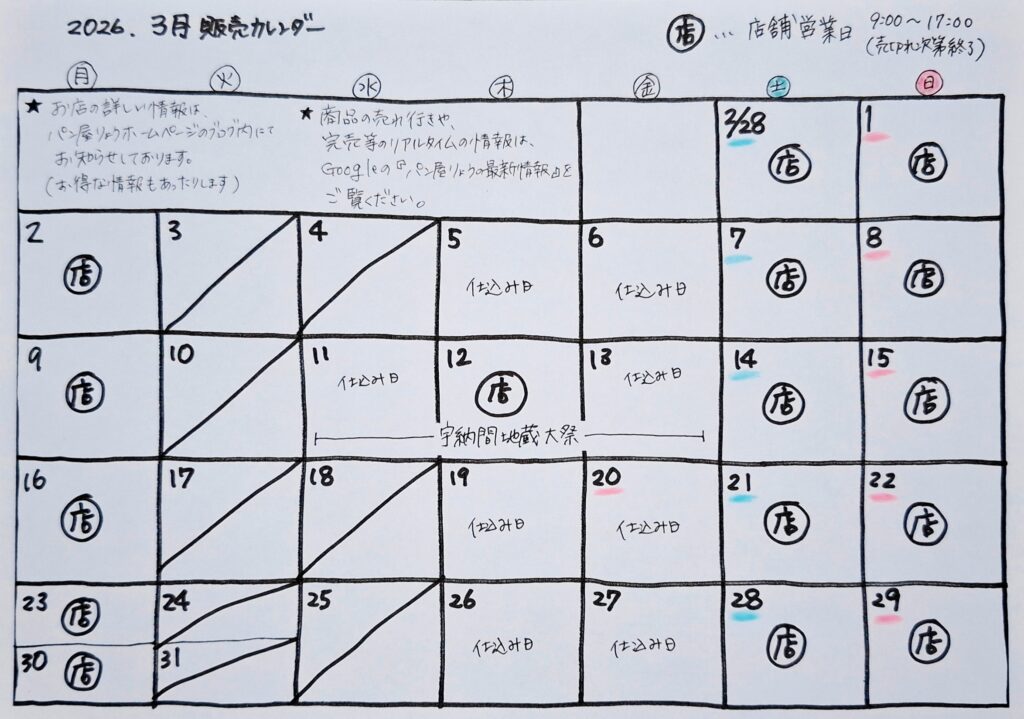 2026. 3月 販売カレンダー
店 … 店舗営業日 9:00～17:00
(売切れ次第終了)
月 火 水 木 金 土 日
★ お店の詳しい情報は、
パン屋りょうホームページのブログ内にて
お知らせしております。
(お得な情報もあったりします)
★ 商品の売れ行きや、
完売等のリアルタイムの情報は、
Googleの『パン屋りょうの最新情報』を
ご覧ください。
2/28 店
1 店
2 店
3
4
5 仕込み日
6 仕込み日
7 店
8 店
9 店
10
11 仕込み日
12 店
13 仕込み日
宇納間地蔵大祭
14 店
15 店
16 店
17
18
19 仕込み日
20 仕込み日
21 店
22 店
23 店
24
25
26 仕込み日
27 仕込み日
28 店
29 店
30 店
31